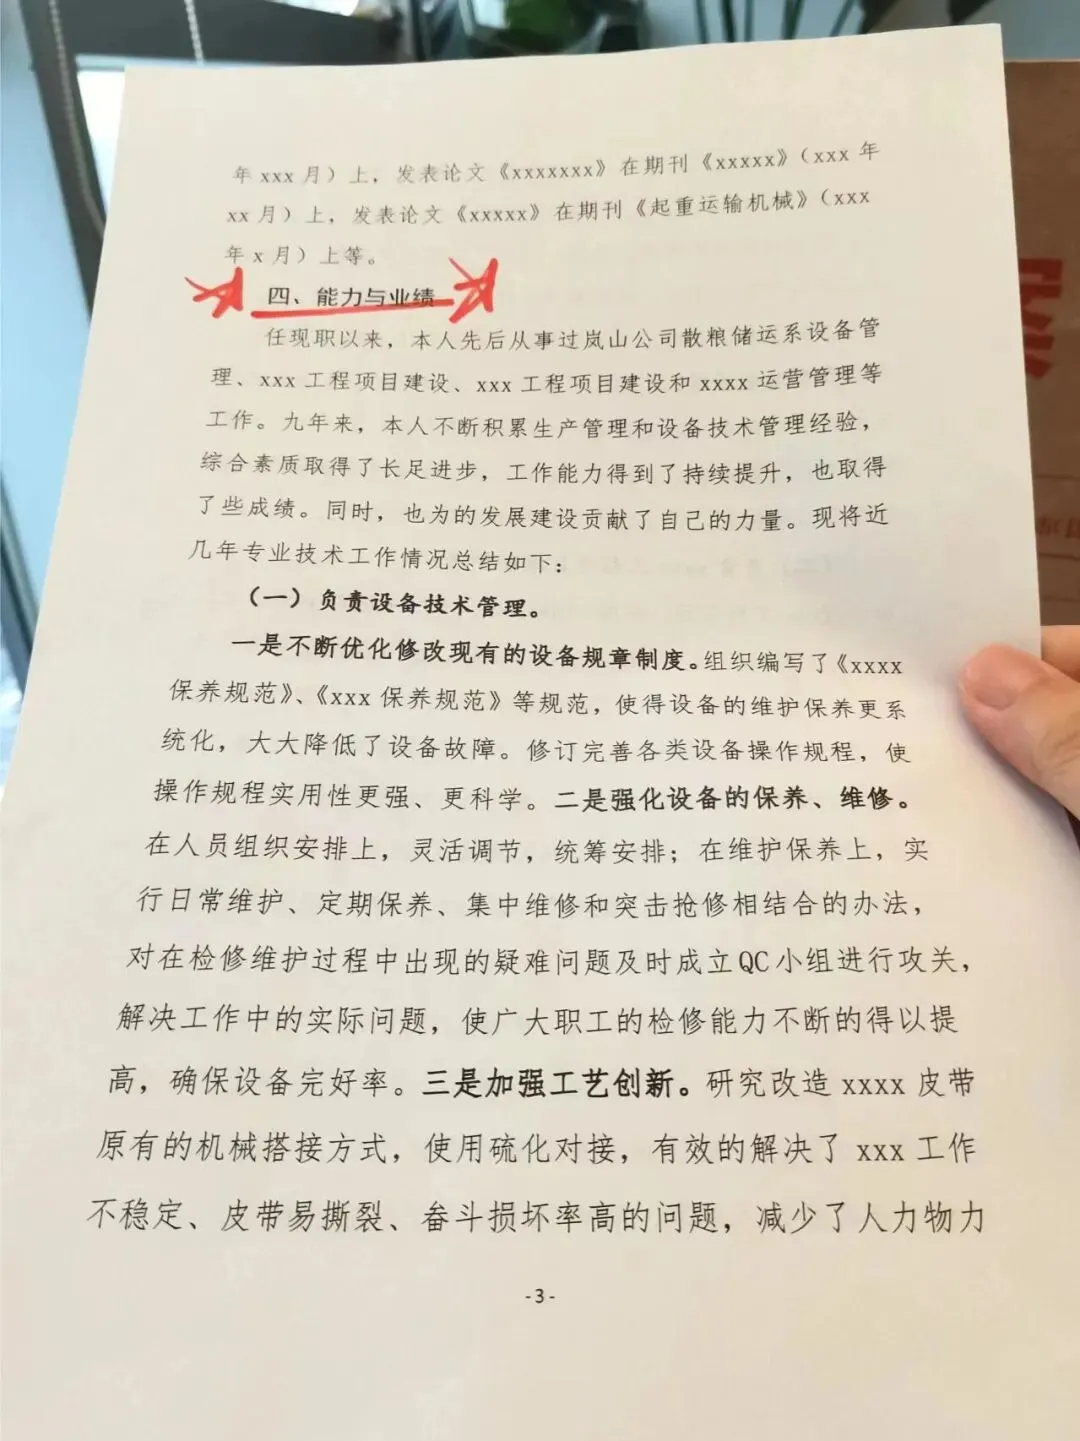 年 xxx 月）上，发表论文《xxxxxxx》在期刊《xxxxx》（xxx 年
xx 月）上，发表论文《xxxxx》在期刊《起重运输机械》（xxx
年 x 月）上等。
四、能力与业绩
任现职以来，本人先后从事过岚山公司散粮储运系设备管
理、xxx 工程项目建设、xxx 工程项目建设和 xxxx 运营管理等
工作。九年来，本人不断积累生产管理和设备技术管理经验，
综合素质取得了长足进步，工作能力得到了持续提升，也取得
了些成绩。同时，也为的发展建设贡献了自己的力量。现将近
几年专业技术工作情况总结如下：
（一）负责设备技术管理。
一是不断优化修改现有的设备规章制度。组织编写了《xxxx
保养规范》、《xxx 保养规范》等规范，使得设备的维护保养更系
统化，大大降低了设备故障。修订完善各类设备操作规程，使
操作规程实用性更强、更科学。二是强化设备的保养、维修。
在人员组织安排上，灵活调节，统筹安排；在维护保养上，实
行日常维护、定期保养、集中维修和突击抢修相结合的办法，
对在检修维护过程中出现的疑难问题及时成立QC小组进行攻关，
解决工作中的实际问题，使广大职工的检修能力不断的得以提
高，确保设备完好率。三是加强工艺创新。研究改造 xxxx 皮带
原有的机械搭接方式，使用硫化对接，有效的解决了 xxx 工作
不稳定、皮带易撕裂、畚斗损坏率高的问题，减少了人力物力
- 3 -